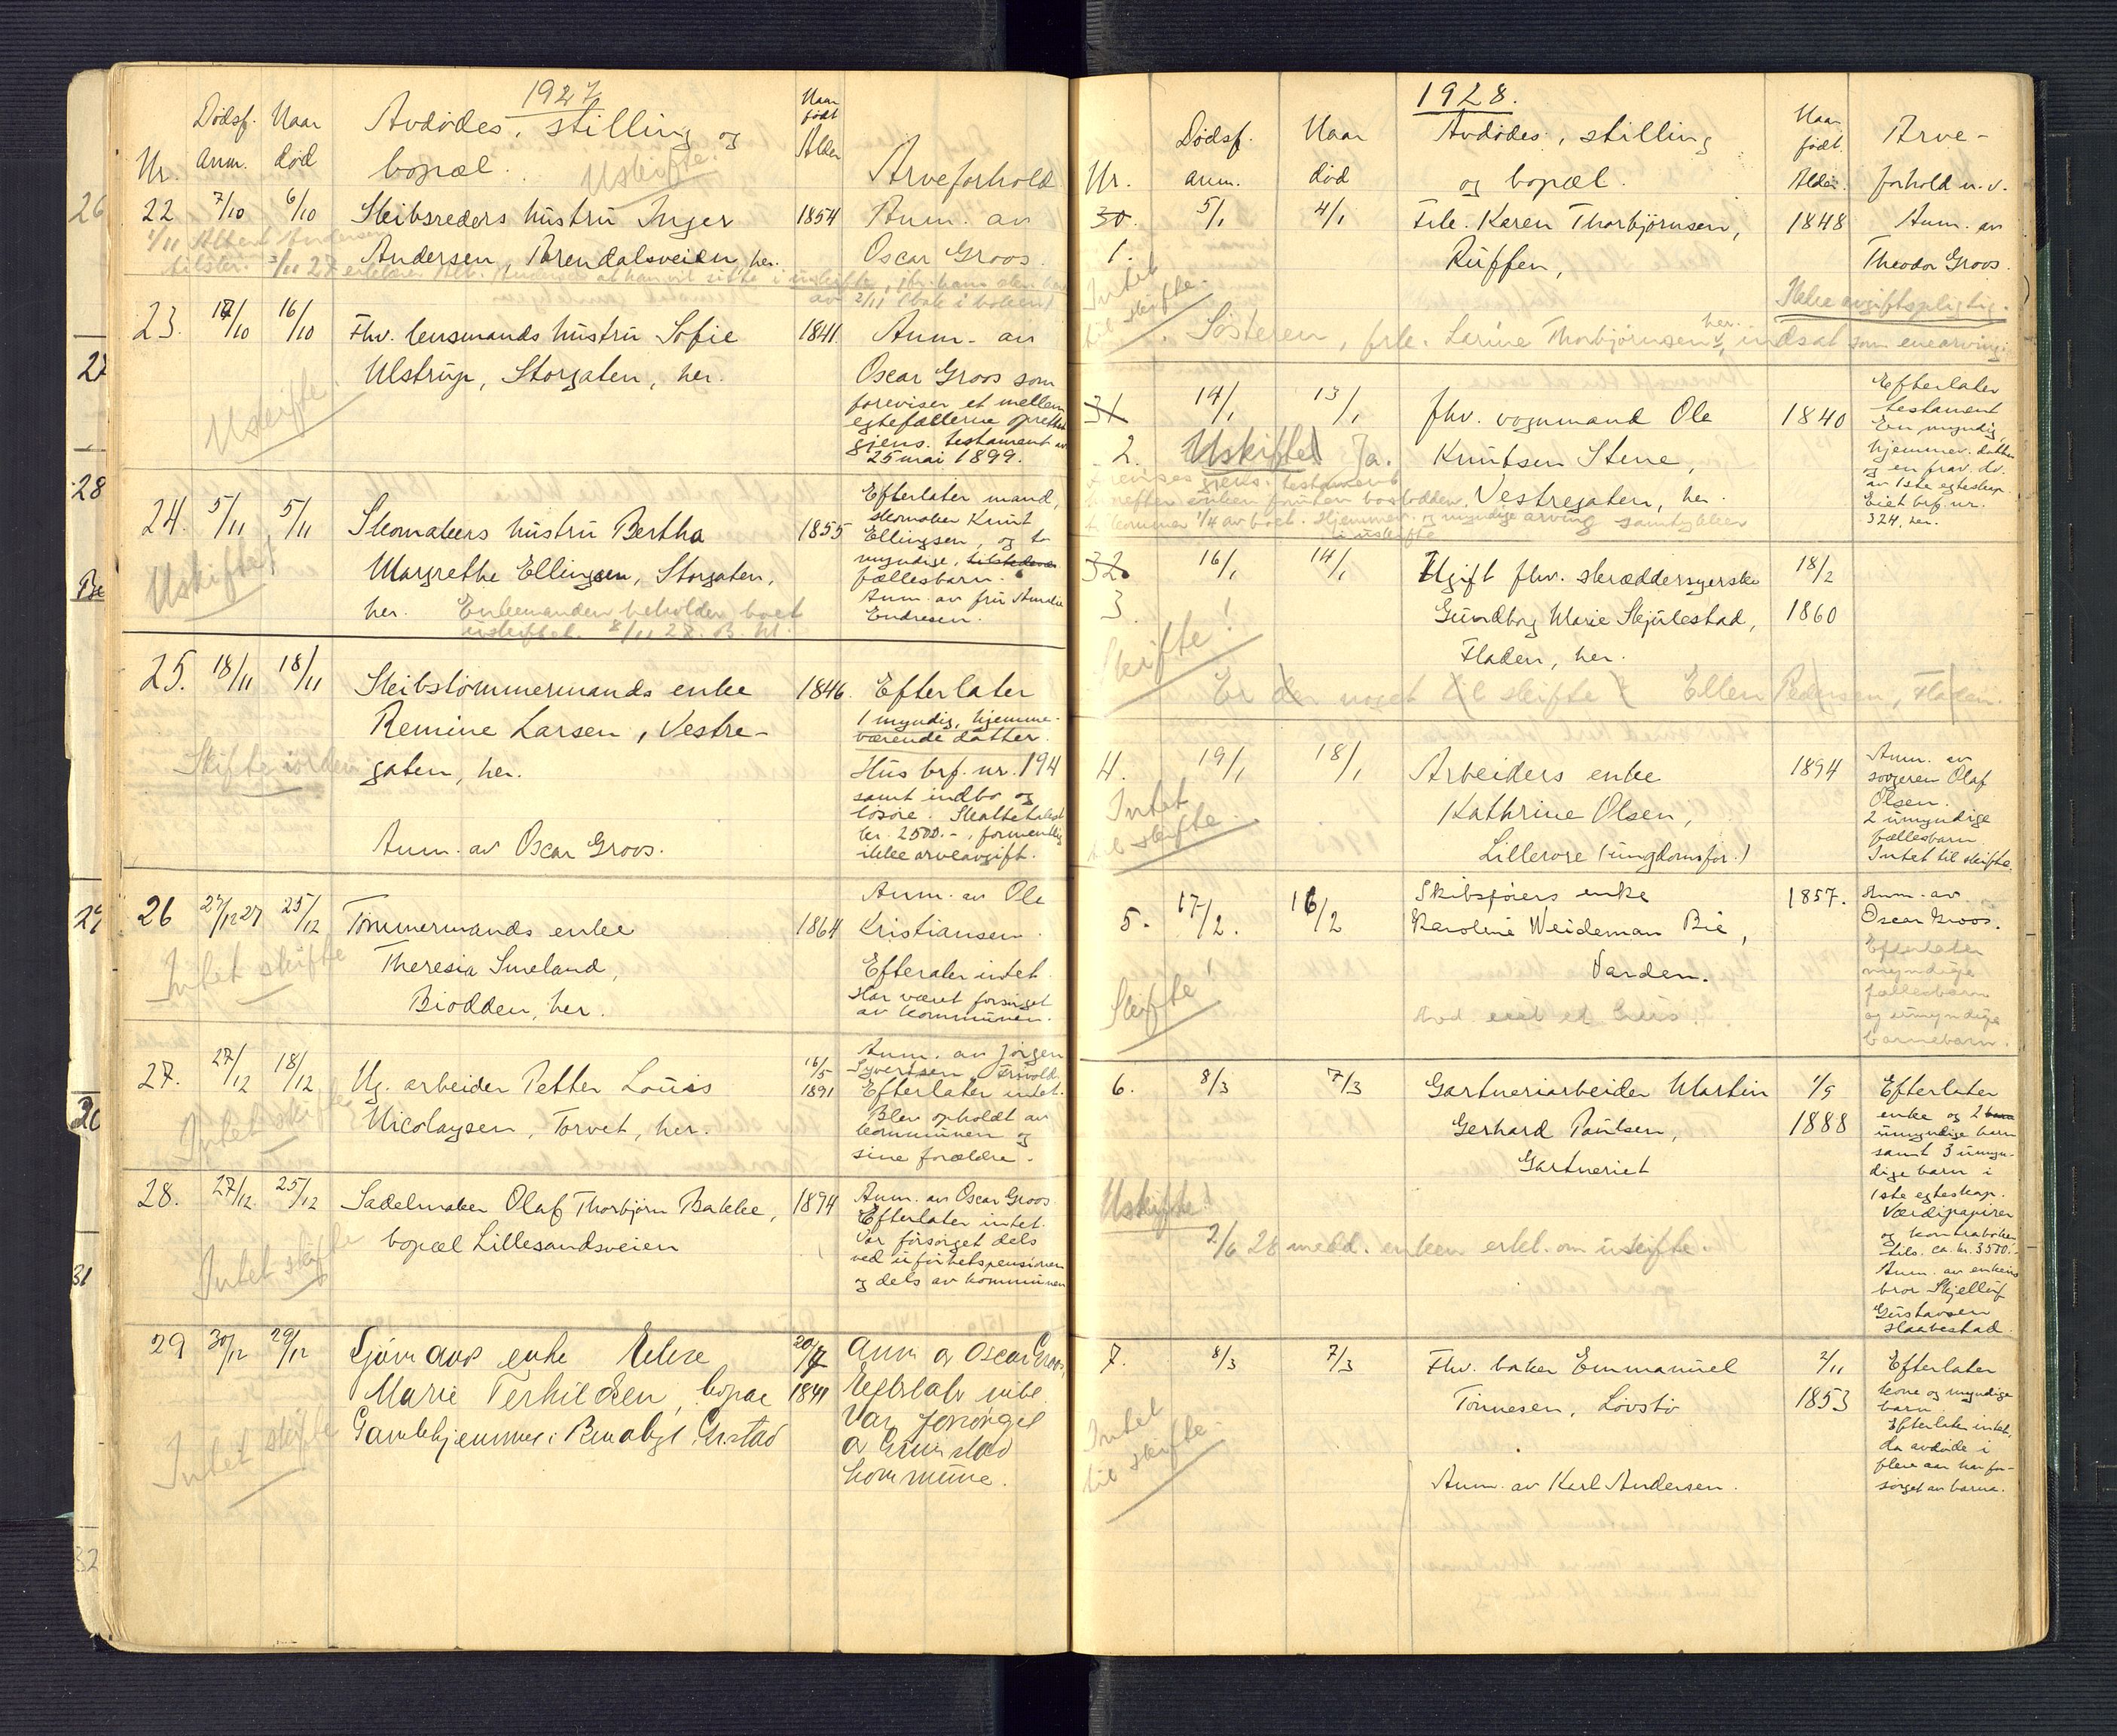 1927
Nr.
Dødsf. anm.
Naar død
Avdødes, stilling og
bopæl.
Naar født
Alder
Arveforhold
Uskifte.
22 7/10 6/10 Skibsreders hustru Inger 1854 Anm. av
Andersen, Arendalsveien, her. Oscar Groos.
1/11 Albert Andersen
23. 17/10 16/10 Fhv. lensmands hustru Sofie 1841 Anm. av
Ulstrup, Storgaten, her. Oscar Groos som
foreviser et mellem
egtefællerne oprettet
gjens. testament av
25 mai 1899.
Uskifte.
24. 5/11 5/11 Skomakers hustru Bertha 1855
Margrethe Ellingsen, Storgaten,
her. Enkemanden beholder boet
uskiftet.
Efterlater mand,
skomaker Knut
Ellingsen, og to
myndige,
fællesbarn.
Anm. av fru Amalie
Endresen.
Uskiftet
25. 18/11 18/11 Skibstømmermands enke 1846. Efterlater
Remine Larsen, Vestre-
gaten, her.
1 myndig, hjemme-
værende datter.
Hus brf. nr. 194
samt indbo og
løsøre. Skattetakst
kr. 2500.-, formentlig
ikke arveavgift.
Anm. av Oscar Groos.
Skifte i orden
26 27/12 27 25/12 Tømmermands enke 1864
Theresia Smeland,
Biodden, her.
Anm. av Ole
Kristiansen.
Efterater intet.
Har været forsørget
av kommunen.
Intet skifte
27. 27/12 18/12 Ug. arbeider Petter Louis 16/5 1891
Nicolaysen, Torvet, her.
Anm. av Jørgen
Syvertsen,
Efterlater intet.
Blev opholdt av
kommunen og
sine forældre.
Intet skifte
28. 27/12. 25/12 Sadelmaker Olaf Thorbjørn Bakke, 1894
bopæl Lillesandsveien
Anm. av Oscar Groos
Efterlater intet.
Var forsørget dels
ved uførhetspensionen
og dels av kommunen
Intet skifte
29 30/12 29/12 enke Elise 20/7 1841
Marie Terkildsen, bopæl
Gamlehjemmet i
Anm av Oscar Groos,
Efterlater intet
Var forsørget
av Grimstad
kommune.
Intet skifte
26
27
28
29
31
32
1928.
Nr.
Dødsf. anm.
Naar død
Avdødes, stilling
og bopæl.
Naar født.
Alder.
Arve-
forhold m.v.
30. 5/1 4/1 Frk. Karen Thorbjørnsen, 1848 Anm. av
1. Ruffen, Theodor Groos.
Intet
til skifte.
Ikke avgiftspligtig.
Søsteren, frk. Larine Thorbjørnsen, her. indsat som enearving.
31 14/1 13/1 fhv. vognmand Ole 1840
2. Uskifte! Ja. Knutsen Stene,
Vestregaten, her.
Efterlater
testament
En myndig
hjemmev. datter
og en frav. do.
av 1ste egteskap.
Eiet brf. nr.
324. her.
32. 16/1 14/1 Ugift fhv. skræddersyerske 18/2
3. Gundborg Marie Skjulestad, 1860
Fladen, her.
Skifte!
Er der noget til skifte? Ellen Pedersen, Fladen.
4. 19/1 18/1 Arbeiders enke 1894
Kathrine Olsen,
Lillerore (ungdomsfor.)
Anm. av
svogeren Olaf
Olsen.
2 umyndige
fællesbarn
Intet til skifte.
Intet
til skifte.
5. 17/2. 16/2 Skibsførers enke 1857. Anm. av
Karoline Weideman Bie, Oscar Groos.
Varden.
Efterlater
myndige
fællesbarn
og umyndige
barnebarn.
Avd. eiet et hus.
Skifte!
6. 8/3 7/3 Gartneriarbeider Martin 1/9
Gerhard Paulsen, 1888
Gartneriet
Efterlater
enke og 2
umyndige barn
samt 3 umyn-
dige barn i
1ste egteskap.
Værdipapirer
og kontrabøker
tils. ca. kr. 3500.-
Anm. av enkens
bror Skjelluf
Gustavsen
Haabestad
Uskifte!
2/6 28 medd. enken erkl. om uskifte.
7. 8/3 7/3 Fhv. baker Emmanuel 2/11
Tønnesen, Løvstø 1853
Efterlater
kone og myndige
barn.
Efterlater intet,
da avdøde i
flere aar har for-
sørget av barna.
Intet
til skifte.
Anm. av Karl Andersen.